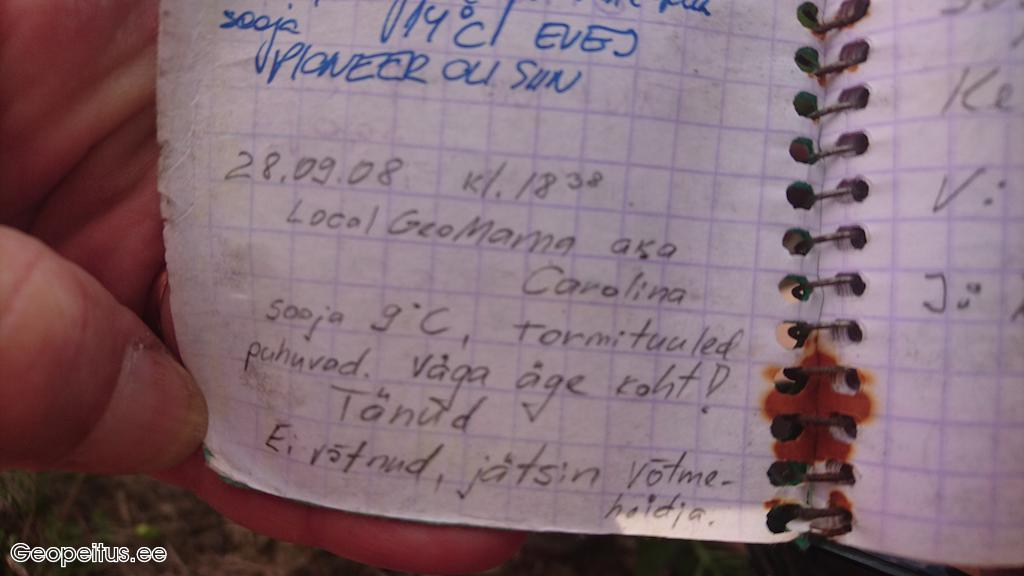 sooja 14°C EVEJ
PIONEER OLI SIIN
28.09.08 kl. 18 38
Local GeoMama aka
Carolina
sooja 9°C, tormituuled
puhuvad. Väga äge koht!
Tänud
Ei võtnud, jätsin võtme-
hoidja.
Ke
V:
J:
Geopeitus.ee